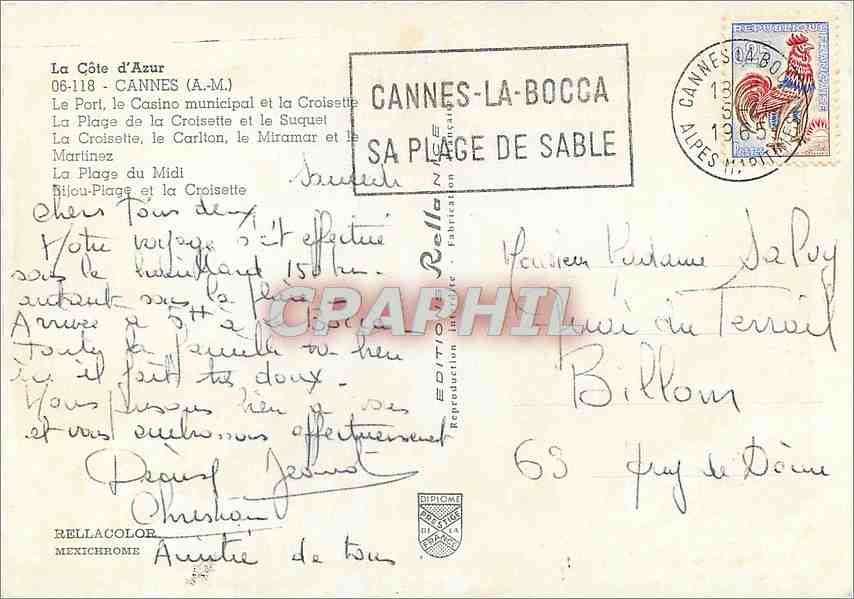 La Côte d'Azur
06-118 - CANNES (A.-M.)
Le Port, le Casino municipal et la Croisette
La Plage de la Croisette et le Suquet
La Croisette, le Carlton, le Miramar et le
Martinez
La Plage du Midi
Bijou-Plage et la Croisette
CANNES-LA-BOCCA
SA PLAGE DE SABLE
CANNES-LA-BOCCA
1965
ALPES MARITIMES
REPUBLIQUE FRANCAISE
Samedi
Chers Tous deux
Notre voyage s'est effectué
sous le brouillard 150 km -
autant sous la pluie -
Arrivée à 5H à la Bocca -
Toute la famille va bien
ici il fait très doux -
Nous pensons bien à vous
et vous embrassons affectueusement
Jeannot
Christian
Amitié de tous
Monsieur Madame
Quai du Terrail
Billom
63 Puy de Dôme
EDITIONS Rella NICE
Reproduction interdite - Fabrication Française
CPARPHIL
RELLACOLOR
MEXICHROME
DIPLOME
PRESTIGE
DE LA
FRANCE